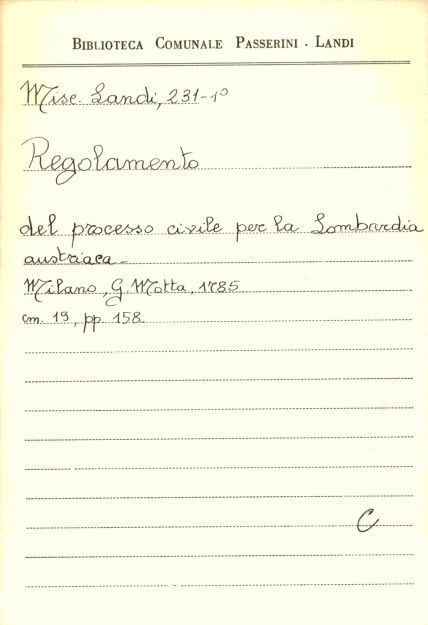 BIBLIOTECA COMUNALE PASSERINI - LANDI
Misc. Landi, 231-1º
Regolamento
del processo civile per la Lombardia
austriaca -
Milano, G. Motta, 1785
cm. 19, pp. 158
C